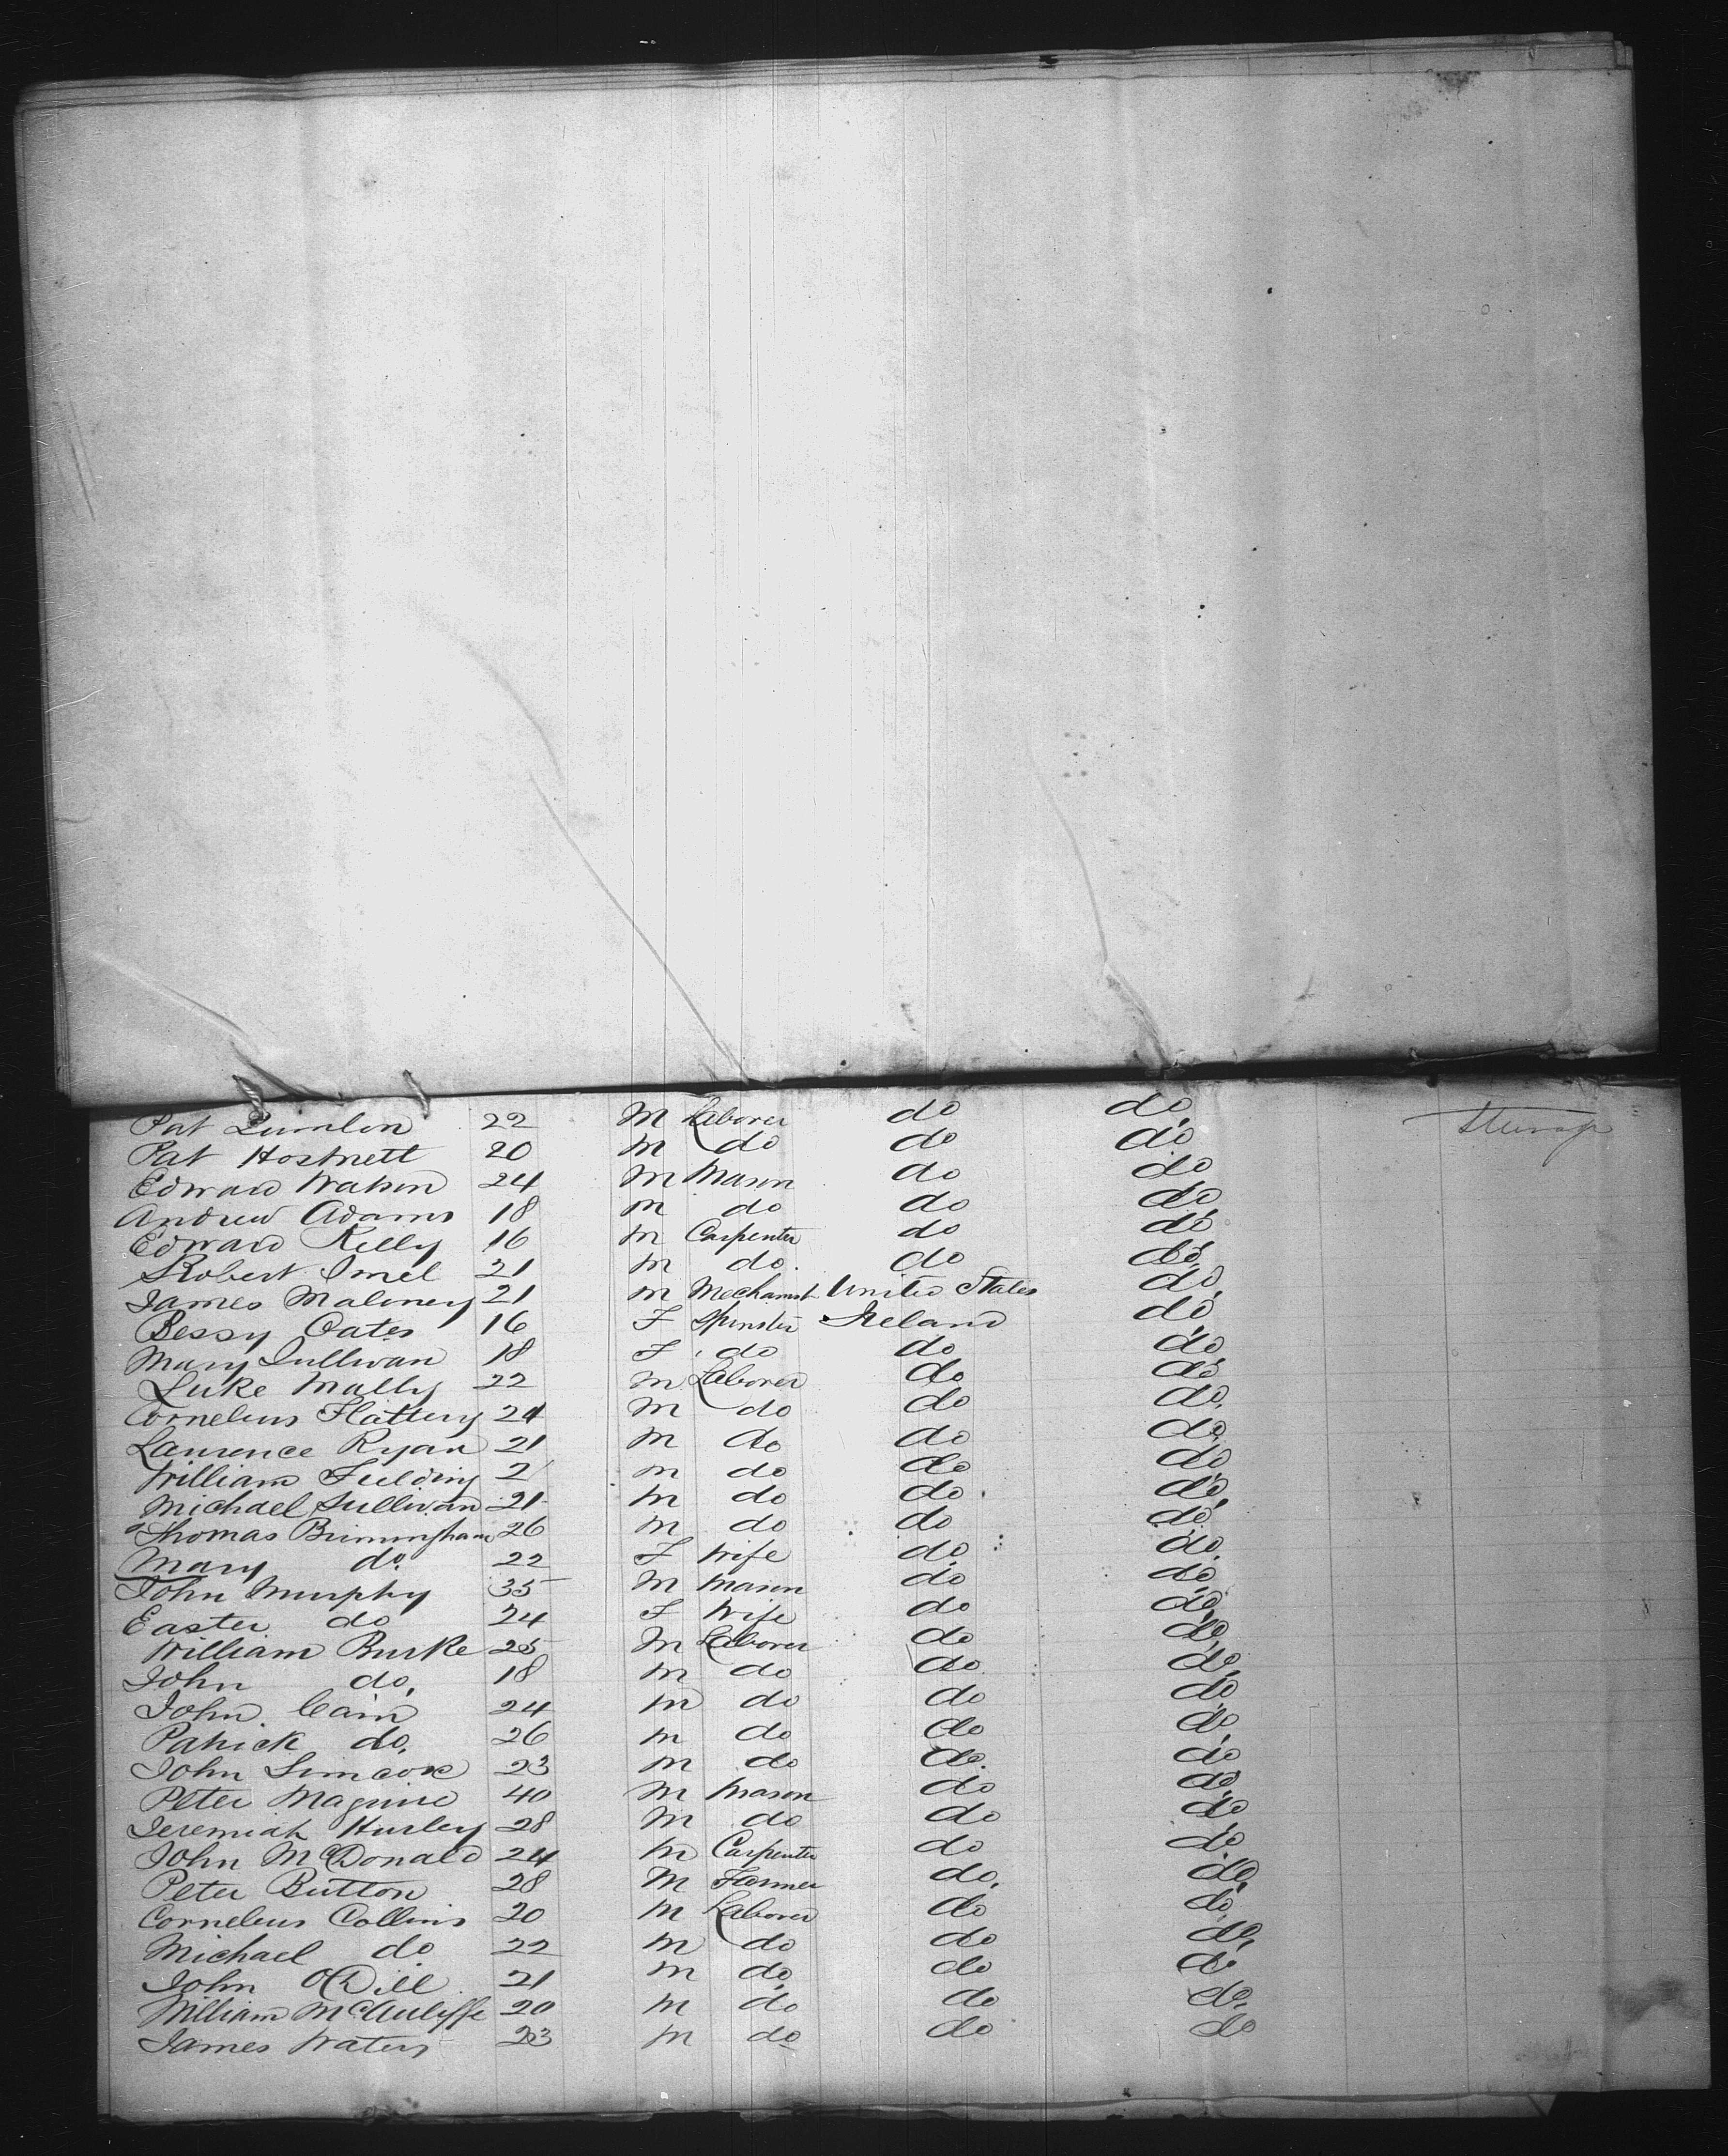 Pat Quinlon 22 M Laborer do do Steerage
Pat Hostnett 20 M do do do
Edward Watson 24 M Mason do do
Andrew Adams 18 M do do do
Edward Kelly 16 M Carpenter do do
Robert Imel 21 M do. do do
James Maloney 21 M Mechanist United States do
Bessy Oates 16 F Spinster Ireland do
Mary Sullivan 18 F do do do
Luke Mally 22 M Laborer do do
Cornelius Flattery 24 M do do do
Laurence Ryan 21 M do do do
William Fielding 21 M do do do
Michael Sullivan 21 M do do do
Thomas Birmingham 26 M do do do
Mary do. 22 F Wife do do
John Murphy 35 M Mason do do
Easter do 24 F Wife do do
William Burke 25 M Laborer do do
John do. 18 M do do do
John Cain 24 M do do do
Patrick do. 26 M do do do
John Simcoxe 23 M do do do
Peter Maguire 40 M Mason do do
Jeremiah Hurley 28 M do do do
John McDonald 24 M Carpenter do do
Peter Button 28 M Farmer do. do.
Cornelius Collins 20 M Laborer do do
Michael do 22 M do do do
John ODill 21 M do do do
William McAuliffe 20 M do do do
James Waters 23 M do do do